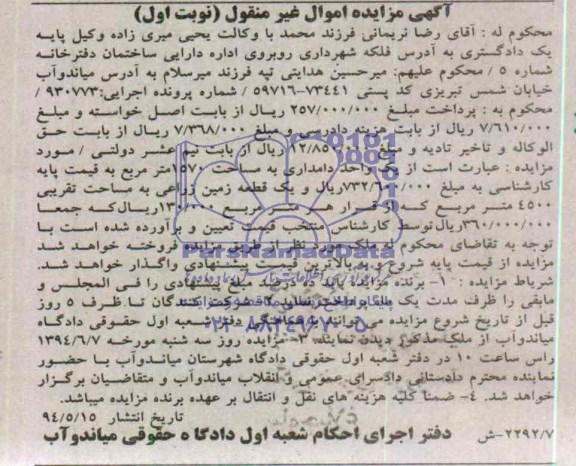 آگهی مزایده اموال غیر منقول (نوبت اول)
محکوم له : آقای رضا نریمانی فرزند محمد با وکالت یحیی میری زاده وکیل پایه
یک دادگستری به آدرس فلکه شهرداری روبروی اداره دارایی ساختمان دفترخانه
شماره ۵ / محکوم علیهم: میرحسین هدایتی تپه فرزند میرسلام به آدرس میاندوآب
خیابان شمس تبریزی کد پستی ۷۳۴۴۱-۵۹۷۱۶ / شماره پرونده اجرایی:۹۳۰۷۷۳ /
محکوم به : پرداخت مبلغ ۲۵۷/۰۰۰/۰۰۰ ریال از بابت اصل خواسته و مبلغ
۷/۶۱۰/۰۰۰ ریال از بابت هزینه دادرسی و مبلغ ۷/۳۶۸/۰۰۰ ریال از بابت حق
الوکاله و تاخیر تادیه و مبلغ ریال از بابت نیم عشر دولتی / مورد
مزایده : عبارت است از یک واحد دامداری به مساحت ۱۵۷۰متر مربع به قیمت پایه
کارشناسی به مبلغ ریال و یک قطعه زمین زراعی به مساحت تقریبی
۴۵۰۰ متر مربع که از قرار هر متر مربع ریال که جمعا
۳۶۰/۰۰۰/۰۰۰ریال توسط کارشناس منتخب قیمت تعیین و برآورده شده است با
توجه به تقاضای محکوم له ملک مورد نظر از طریق مزایده فروخته خواهد شد
مزایده از قیمت پایه شروع و به بالاترین قیمت پیشنهادی واگذار خواهد شد.
شریاط مزایده : ۱- برنده مزایده باید ده درصد مبلغ پیشنهادی را فی المجلس و
مابقی را ظرف مدت یک ماه پرداخت نماید ۲- شرکت کنندگان تا ظرف ۵ روز
قبل از تاریخ شروع مزایده می توانند با هماهنگی دفتر شعبه اول حقوقی دادگاه
میاندوآب از ملک مذکور دیدن نمایند. ۳- مزایده روز سه شنبه مورخه ۱۳۹۴/۶/۷
راس ساعت ۱۰ در دفتر شعبه اول حقوقی دادگاه شهرستان میاندوآب با حضور
نماینده محترم دادستانی دادسرای عمومی و انقلاب میاندوآب و متقاضیان برگزار
خواهد شد. ۴- ضمنا کلیه هزینه های نقل و انتقال بر عهده برنده مزایده میباشد.
تاریخ انتشار ۹۴/۵/۱۵
۲۲۹۲/۷-ش دفتر اجرای احکام شعبه اول دادگاه حقوقی میاندوآب
ParsNamadData
۰۲۱-۸۸۳۴۹۶۷۰-۵